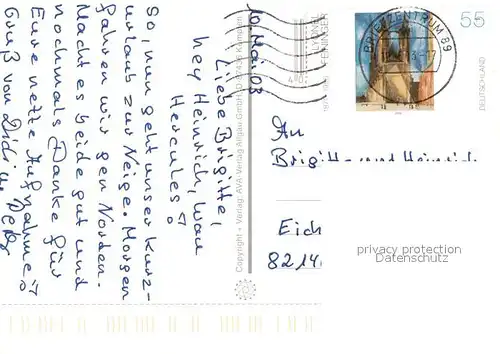 10. Mai 03
Liebe Brigitte,
hey Heinrich, wau
Hercules!
So, nun geht unser Kurz-
urlaub zur Neige. Morgen
fahren wir gen Norden.
Macht es beide gut und
nochmals Danke für
Eure nette Aufnahme!
Gruß von Didi u.
Copyright + Verlag: AVA-Verlag Allgäu GmbH, D-87435 Kempten
LYONEL FEININGER
BRIEFZENTRUM 89
55
DEUTSCHLAND
An
Brigitte und Heinrich
Eich
8214
privacy protection
Datenschutz